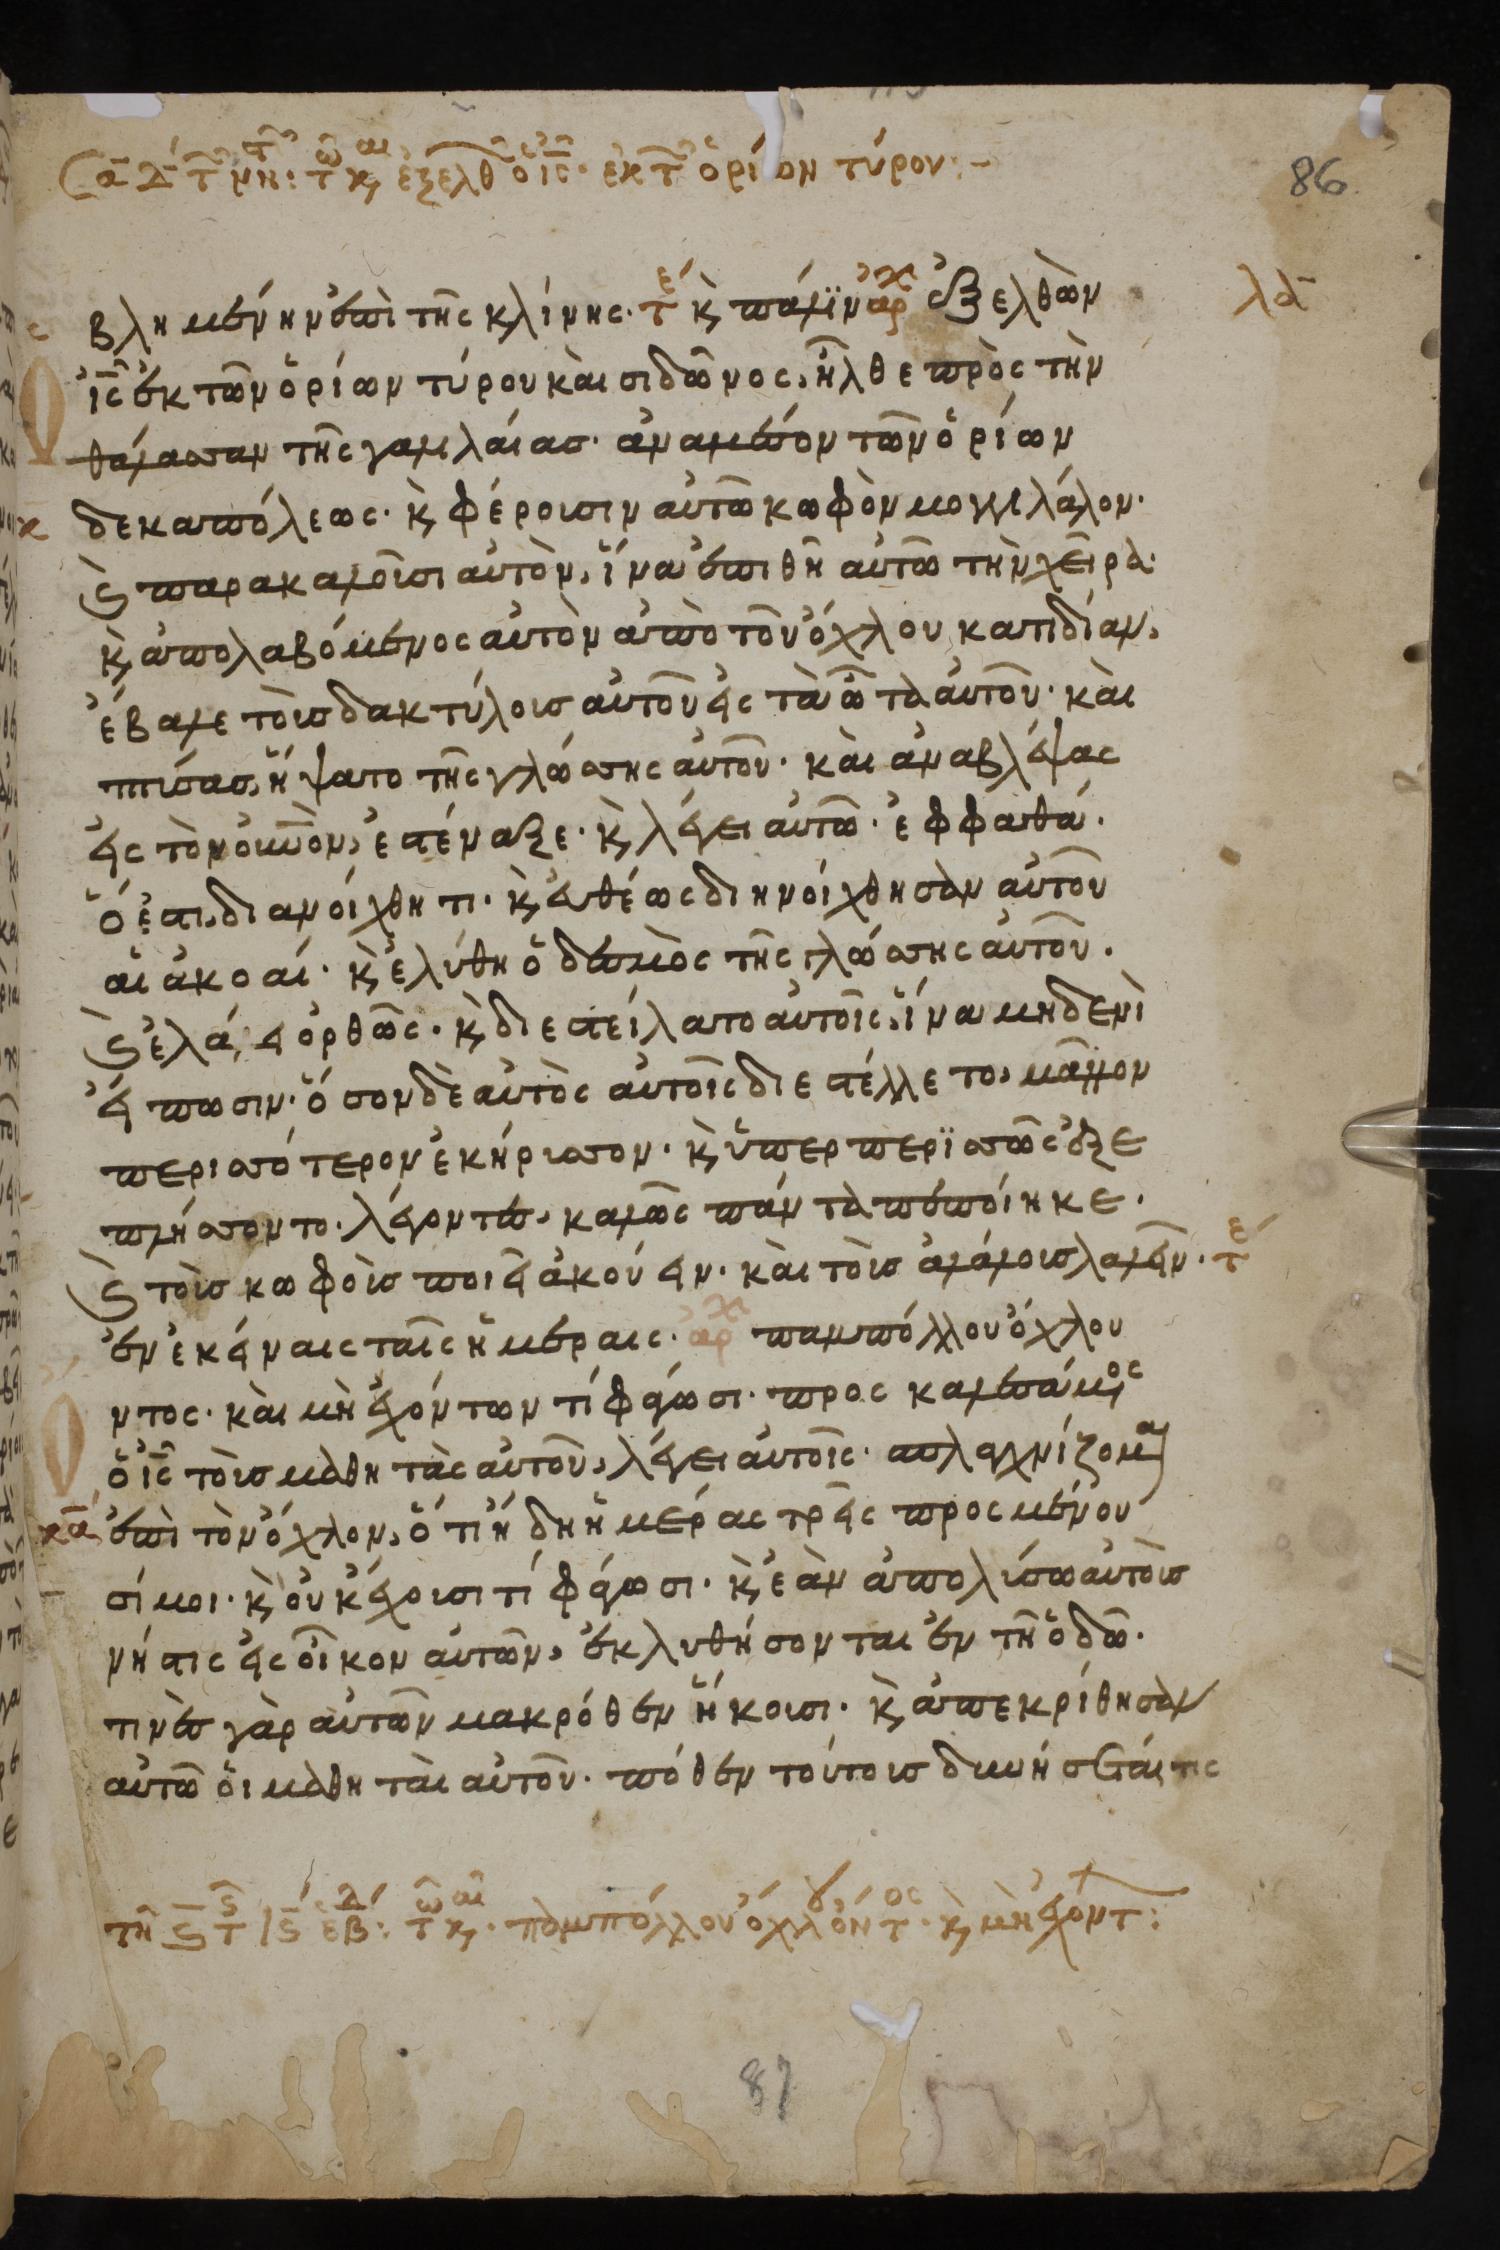 86
βλημένην ἐπὶ τῆς κλίνης· τέ κ̀ πάλϊν ἀρχ ἐξελθὼν
λδ
ἰς̅ ἐκ τῶν ὁρίων τύρου καὶ σιδῶνος, ἦλθε πρὸς τὴν
θάλασσαν τῆς γαλιλαίας· ἀναμέσον τῶν ὁρίων
δεκαπόλεως· κ̀ φέρουσιν αὐτῶ κωφὸν μογγιλάλον·
κ̀ παρακαλοῦσι αὐτὸν, ἵνα ἐπιθῆ αὐτῶ τὴν χεῖρα·
κ̀ ἀπολαβόμενος αὐτὸν ἀπὸ τοῦ ὄχλου κατιδίαν,
ἔβαλε τοὺς δακτύλους αὐτοῦ εἰς τὰ ὦτα αὐτοῦ· καὶ
πτύσας, ἥψατο τῆς γλώσσης αὐτοῦ· καὶ ἀναβλέψας
εἰς τὸν οὐνὸν, ἐστέναξε· κ̀ λέγει αὐτῶ· ἐφφαθά·
ὅ ἐστι, διανοίχθητι· κ̀ εὐθέως διηνοίχθησαν αὐτοῦ
αἱ ἀκοαί· κ̀ ἐλύθη ὁ δεσμὸς τῆς γλώσσης αὐτοῦ·
κ̀ ἐλάλει ὀρθῶς· κ̀ διεστείλατο αὐτοῖς, ἵνα μηδενὶ
εἴπωσιν· ὅσον δὲ αὐτὸς αὐτοῖς διεστέλλετο, μᾶλλον
περισσότερον ἐκήρυσσον· κ̀ ὑπερπερϊσσῶς ἐξε
πλήσσοντο· λέγοντες, καλῶς πάντα πεποίηκε·
κ̀ τοὺς κωφοὺς ποιεῖ ἀκούειν· καὶ τοὺς ἀλάλους λαλεῖν· τέ
ἐν ἐκείναις ταῖς ἡμέραις· ἀρχ παμπόλλου ὄχλου
ντος· καὶ μὴ ἐχόντων τί φάγωσι· προσκαλεσάμος
ὁ ἰς̅ τοὺς μαθητὰς αὐτοῦ, λέγει αὐτοῖς· σπλαγχνίζομαι
κα ἐπὶ τὸν ὄχλον, ὅτι ἤδη ἡμέρας τρεῖς προσμένου
σί μοι· κ̀ οὐκ ἔχουσι τί φάγωσι· κ̀ ἐὰν ἀπολύσω αὐτοὺς
νήστις εἰς οἶκον αὐτῶν, ἐκλυθήσονται ἐν τῆ ὁδῶ·
τινὲς γὰρ αὐτῶν μακρόθεν ἥκουσι· κ̀ ἀπεκρίθησαν
αὐτῶ οἱ μαθηταὶ αὐτοῦ· πόθεν τούτους δυνήσεταί τις
87